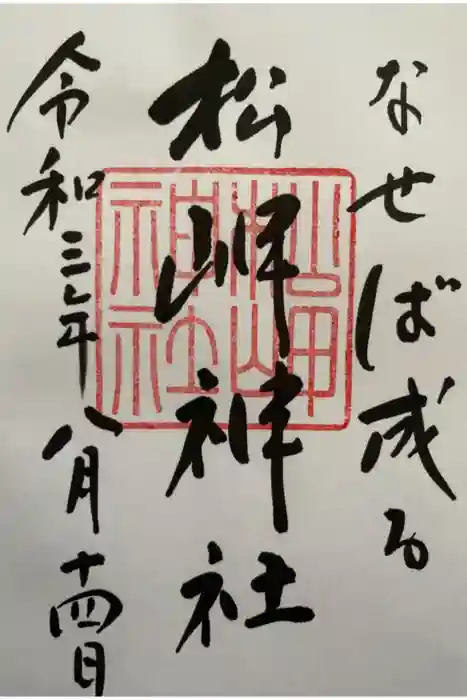 なせば成る
松岬神社
令和三年八月十四日